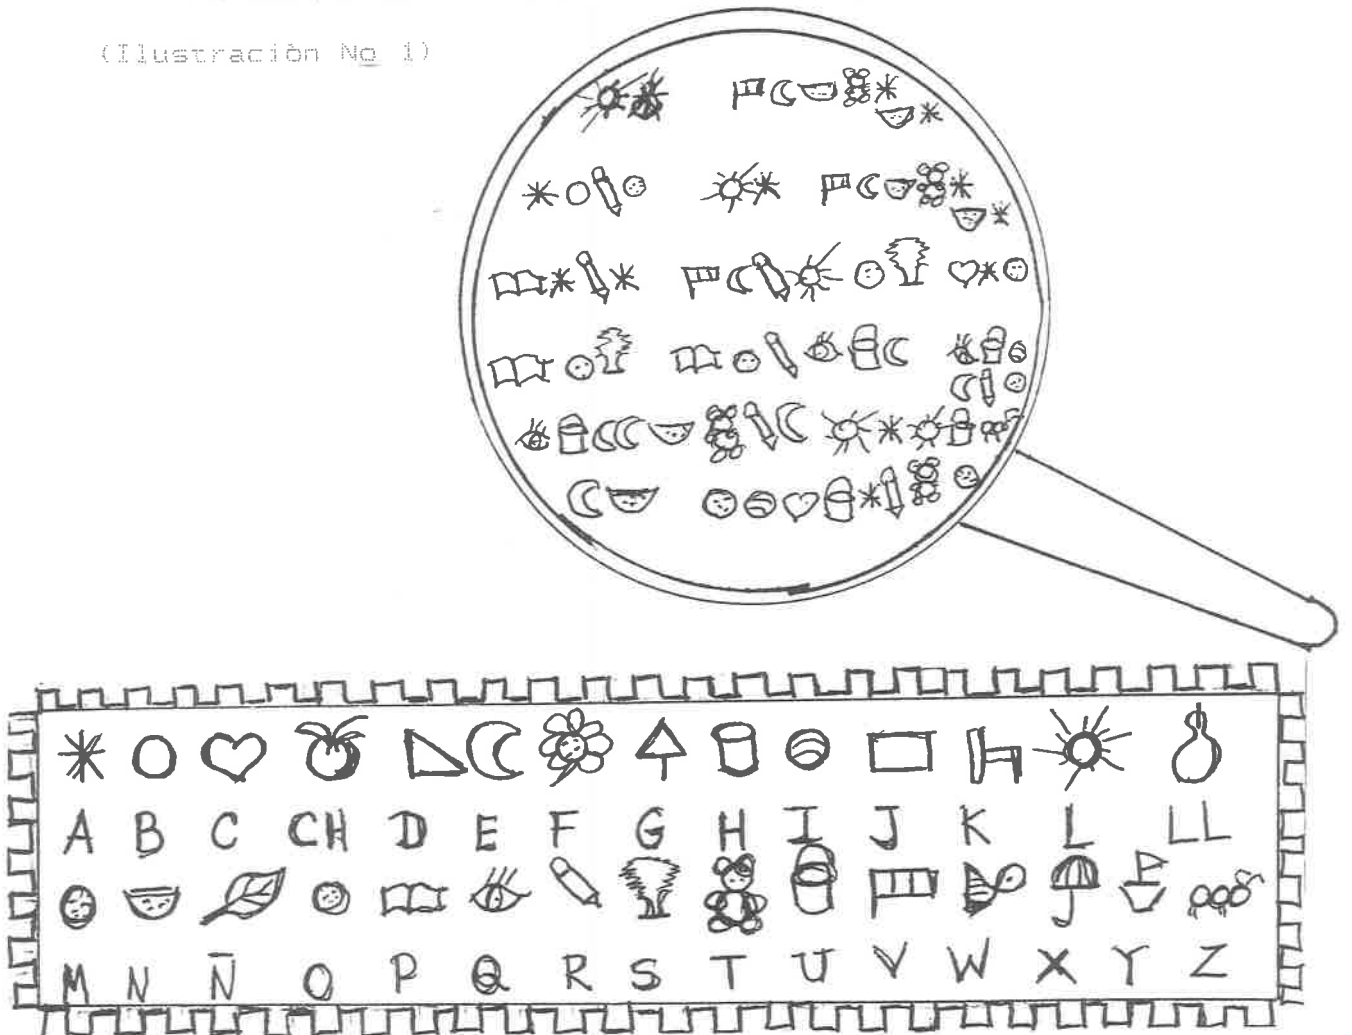 (Ilustración No 1)
A B C CH D E F G H I J K L LL
M N Ñ O P Q R S T U V W X Y Z